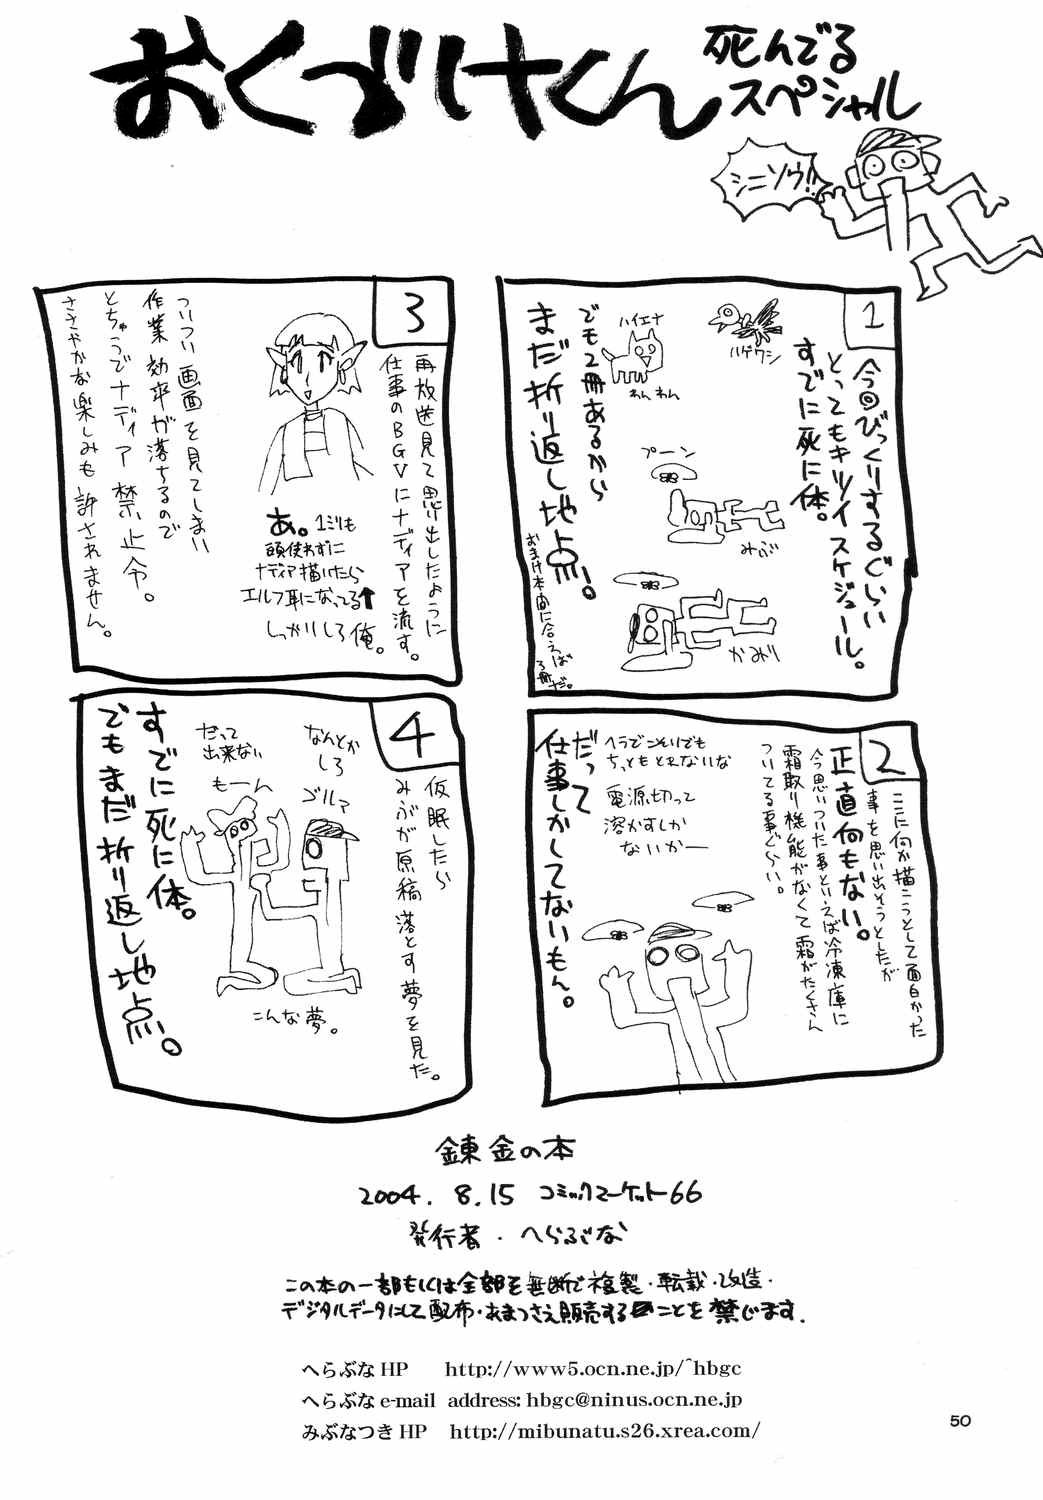 おくづけくん
死んでる
スペシャル
シニソウ!!
1
今回びっくりするぐらい
とってもキツイスケジュール。
すでに死に体。
ハゲワシ
ハイエナ
わんわん
でも2冊あるから
まだ折り返し地点。
おまけ本間に合えば
3冊だ。
プーン
みぶ
かみり
2
ここに何か描こうとして面白かった
事を思い出そうとしたが
正直何もない。
今思いついた事といえば冷凍庫に
霜取り機能がなくて霜がたくさん
ついてる事ぐらい。
ヘラでこそいでも
ちっともとれないな
電源切って
溶かすしか
ないかー
だって
仕事しかしてないもん。
3
再放送見て思い出したように
仕事のBGVにナディアを流す。
あ。1ミリも
頭使わずに
ナディア描いたら
エルフ耳になってる↑
しっかりしろ俺。
ついつい画面を見てしまい
作業効率が落ちるので
とちゅうでナディア禁止令。
ささやかな楽しみも許されません。
4
仮眠したら
みぶが原稿落とす夢を見た。
なんとか
しろ
ゴルァ
だって
出来ない
もーん
こんな夢。
すでに死に体。
でもまだ折り返し地点。
錬金の本
2004.8.15 コミックマーケット66
発行者・へらぶな
この本の一部もしくは全部を無断で複製・転載・改造・
デジタルデータにして配布・あまつさえ販売することを禁じます.
へらぶなHP http://www5.ocn.ne.jp/~hbgc
へらぶな e-mail address: hbgc@ninus.ocn.ne.jp
みぶなつきHP http://mibunatu.s26.xrea.com/
50